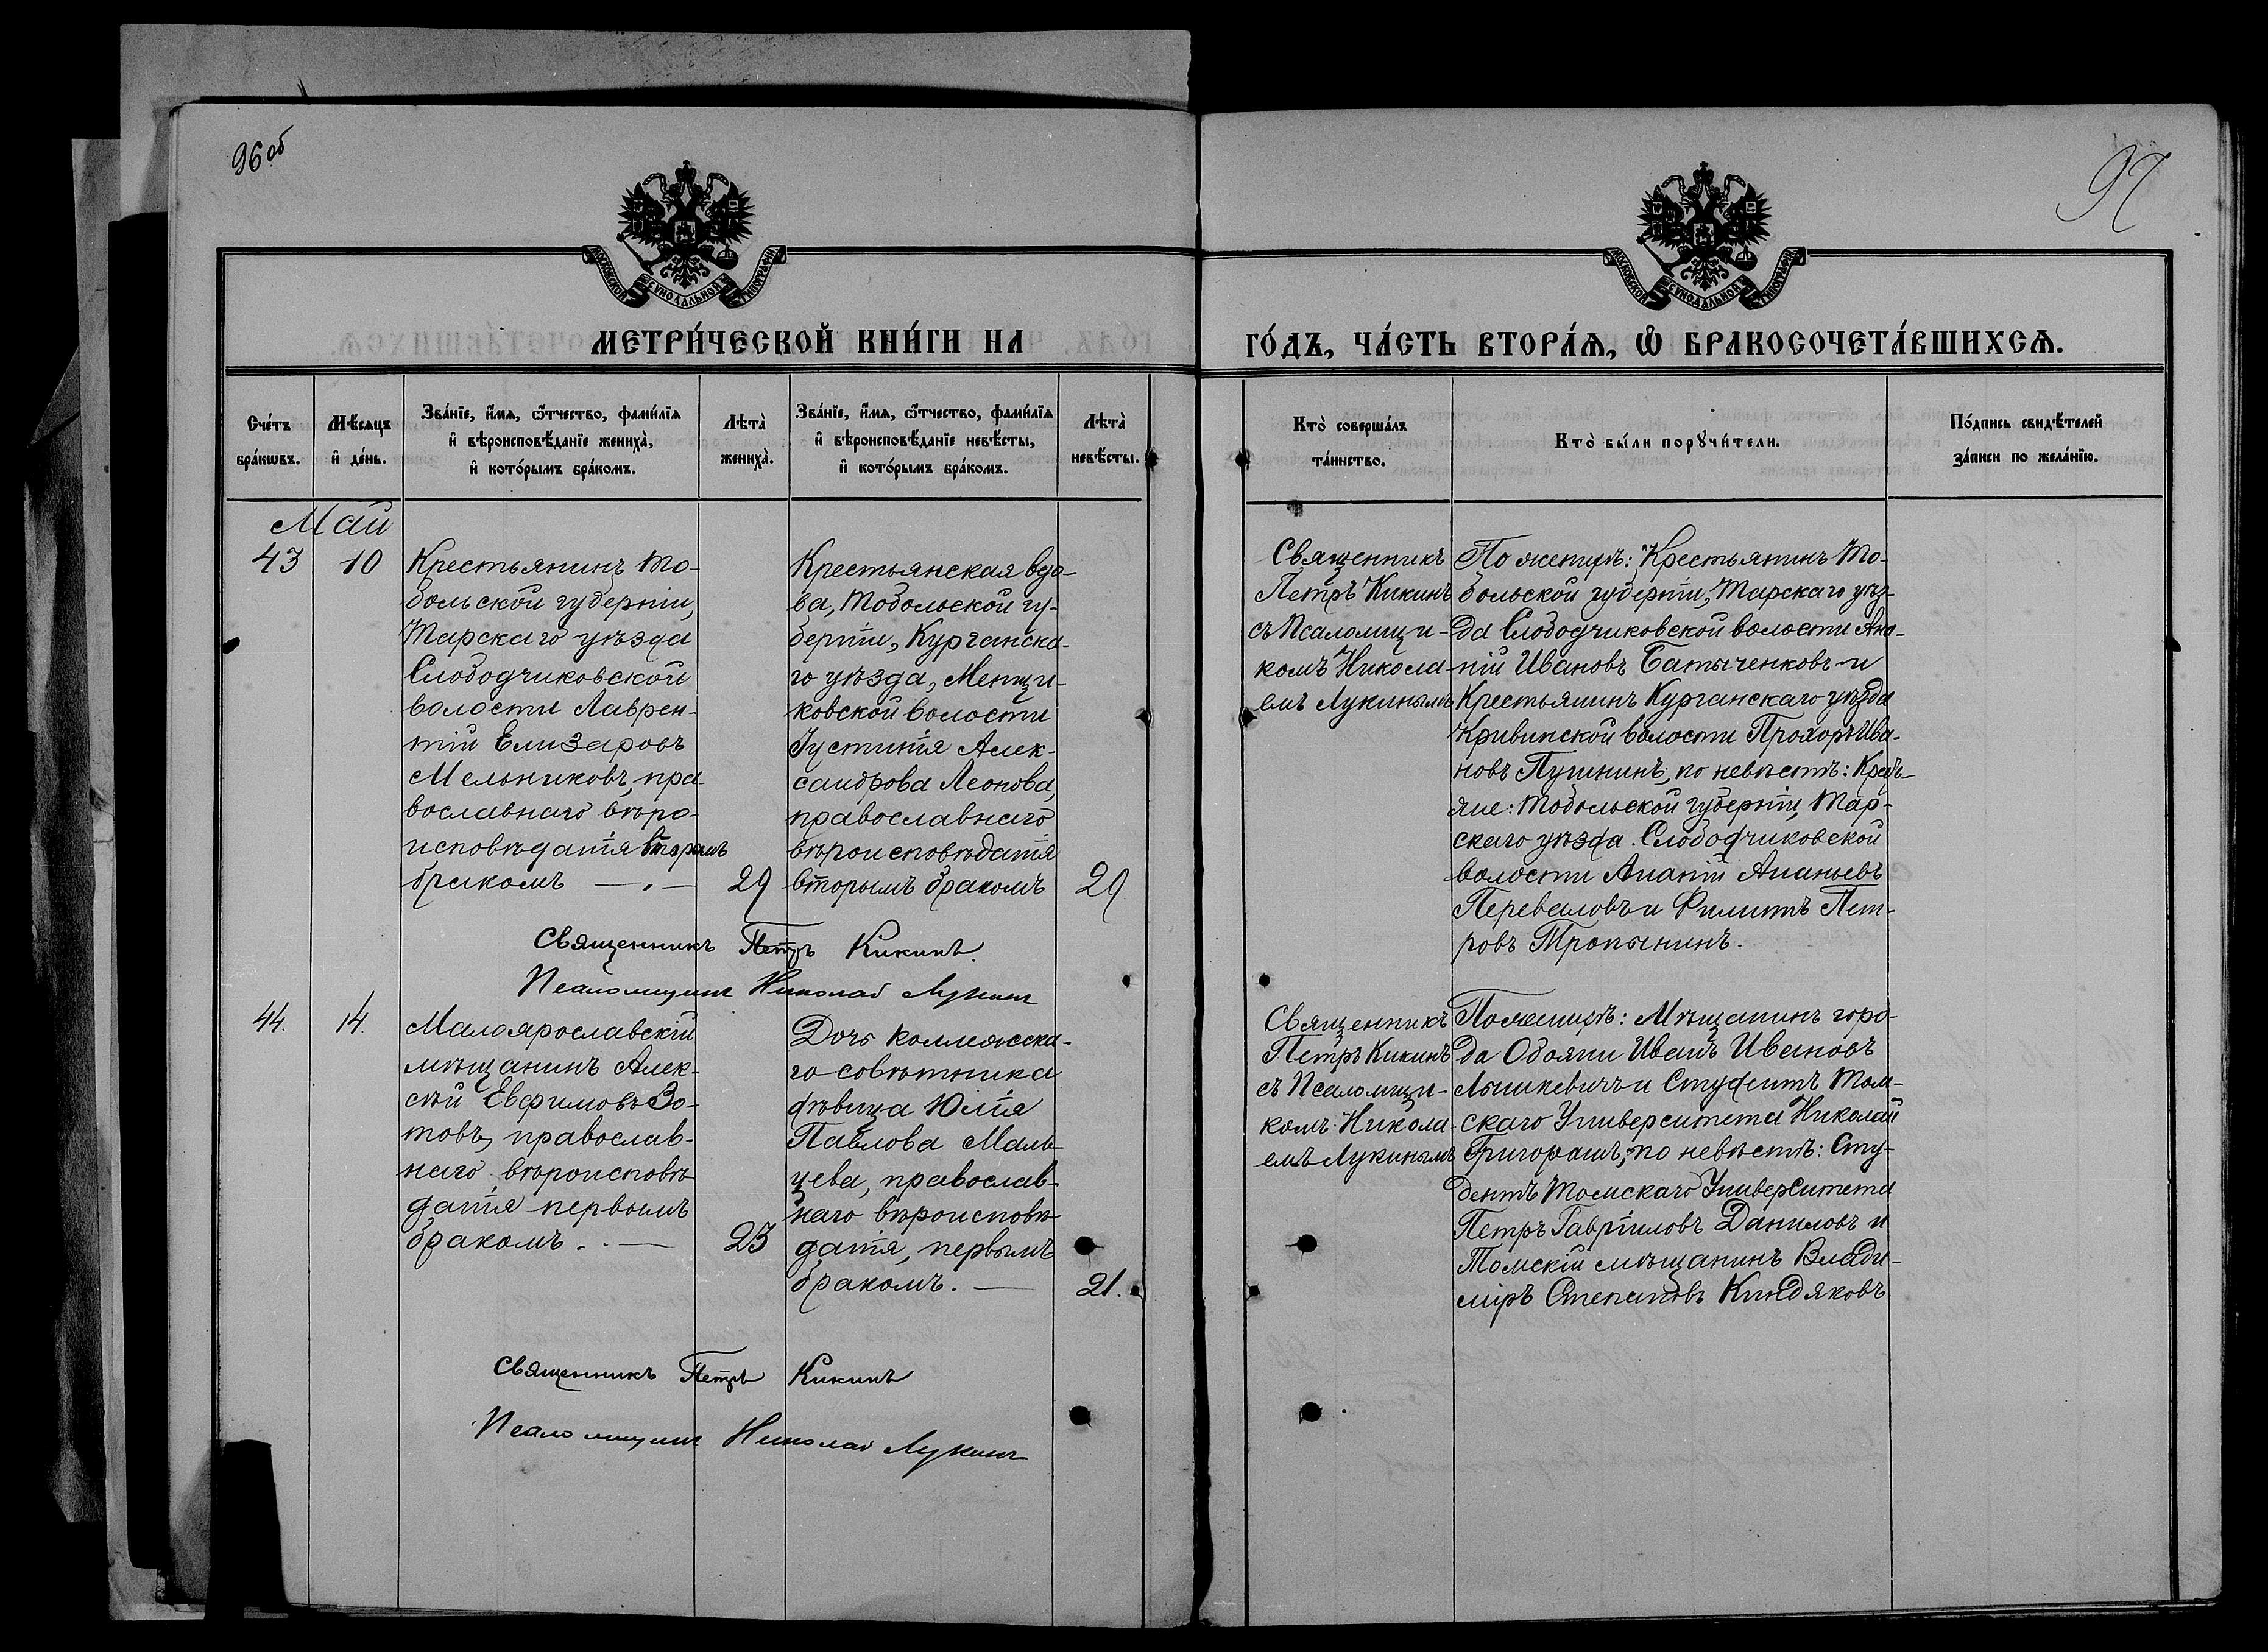 96 об
97
МОСКОВСКОЙ СѴНОДАЛЬНОЙ ТИПОГРАФІИ
МОСКОВСКОЙ СѴНОДАЛЬНОЙ ТИПОГРАФІИ
МЕТРИ́ЧЕСКОЙ КНИ́ГИ НА
ГО́ДЪ, ЧА́СТЬ ВТОРА́Ѧ, Ѽ БРАКОСОЧЕТА́ВШИХСѦ.
Сче́тъ
бра́кѡвъ.
Мѣ́сѧцъ
и҆ де́нь.
Зва́нїе, и҆́мѧ, ѻ҆́тчество, фами́лїѧ
и҆ вѣроисповѣ́данїе жениха̀,
и҆ кото́рымъ бра́комъ.
Лѣта̀
жениха̀.
Зва́нїе, и҆́мѧ, ѻ҆́тчество, фами́лїѧ
и҆ вѣроисповѣ́данїе невѣ́сты,
и҆ кото́рымъ бра́комъ.
Лѣта̀
невѣ́сты.
Кто̀ соверша́лъ
та́инство.
Кто̀ бы́ли порꙋчи́тели.
По́дпись свидѣ́телей
за́писи по жела́нїю.
Май
43
10
Крестьянинъ То-
больской губерніи,
Тарскаго уѣзда
Слободчиковской
волости Лаврен-
тій Елизаровъ
Мельниковъ, пра
вославнаго вѣро-
исповѣданія вторымъ
бракомъ
29
Крестьянская вдо-
ва, Тобольской гу-
берніи, Курганска-
го уѣзда, Менщи-
ковской волости
Іустинія Алек-
сандрова Леонова,
православнаго
вѣроисповѣданія
вторымъ бракомъ
29
Священникъ Петръ Кикинъ.
Псаломщикъ Николай Лукинъ
Священникъ
Петръ Кикинъ
съ Псаломщи-
комъ Никола-
емъ Лукинымъ
По женихѣ: Крестьянинъ То-
больской губерніи, Тарскаго уѣз-
да Слободчиковской волости Ана-
ній Ивановъ Батыченковъ и
Крестьянинъ Курганскаго уѣзда
Кривинской волости Прохоръ Ива-
новъ Пушнинъ, по невѣстѣ: Кресть-
яне: Тобольской губерніи, Тар-
скаго уѣзда. Слободчиковской
волости Ананій Ананьевъ
Переваловъ и Филиппъ Пет-
ровъ Тропынинъ.
44.
14.
Малоярославскій
мѣщанинъ Алек-
сѣй Евфимовъ Зо-
товъ, православ-
наго вѣроисповѣ
данія первымъ
бракомъ.
23
Дочь коллежска-
го совѣтника
дѣвица Юлія
Павлова Маль
цева, православ-
наго вѣроисповѣ-
данія, первымъ
бракомъ.
21.
Священникъ Петръ Кикинъ
Псаломщикъ Николай Лукинъ
Священникъ
Петръ Кикинъ
съ Псаломщи-
комъ Никола-
емъ Лукинымъ
По женихѣ: Мѣщанинъ горо-
да Обояни Иванъ Ивановъ
Мышкевичъ и Студентъ Том-
скаго Университета Николай
Григорашъ, по невѣстѣ: Сту-
дентъ Томскаго Университета
Петръ Гавріиловъ Даниловъ и
Томскій мѣщанинъ Влади-
міръ Степановъ Киндяковъ.